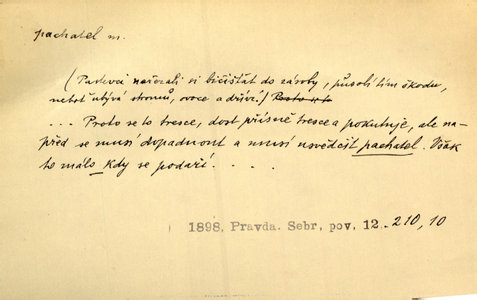 pachatel m.
(Pasevci nařezali si bičišťat do zásoby, působí tím škodu,
neboť ubývá stromů, ovoce a dříví.) Proto x x
... Proto se to tresce, dost přísně tresce a pokutuje, ale na-
před se musí dopadnout a musí usvědčit pachatel. Však
to málo kdy se podaří. . . .
1898, Pravda. Sebr, pov, 12.-210,10